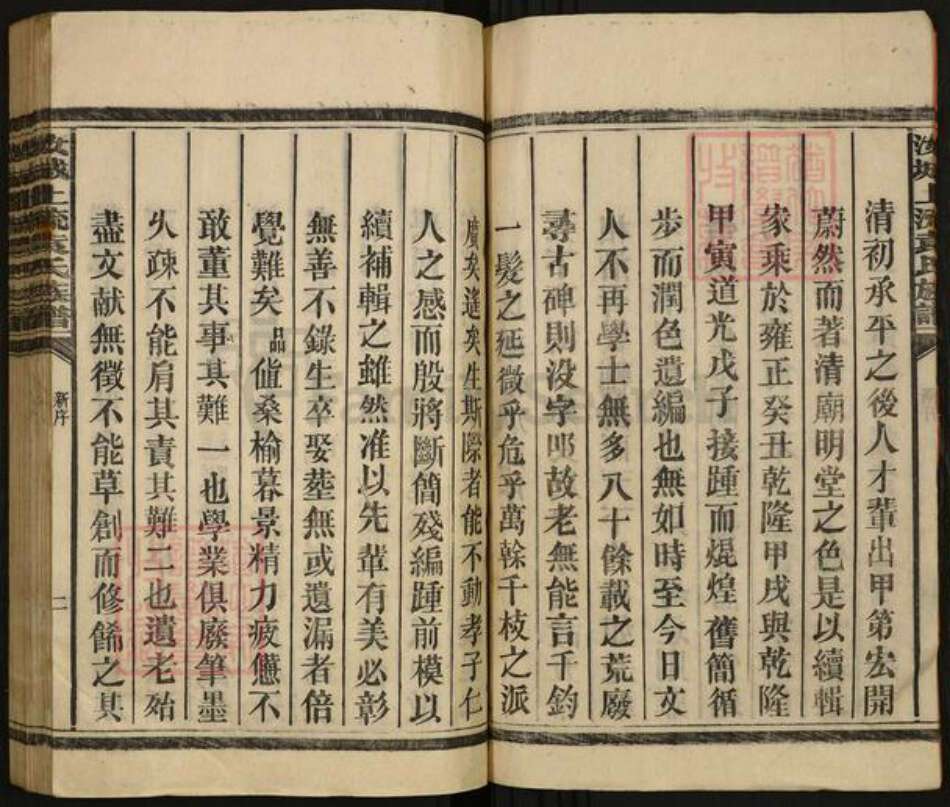 清初承平之後人才輩出甲第宏開
蔚然而著清廟明堂之色是以續輯
家乘於雍正癸丑乾隆甲戌與乾隆
甲寅道光戊子接踵而焜煌舊簡循
步而潤色遺編也無如時至今日文
人不再學士無多八十餘載之荒廢
尋古碑則没字叩故老無能言千鈞
一髮之延微乎危乎萬榦千枝之派
廣矣遙矣生斯際者能不動孝子仁
人之感而殷將斷簡殘編踵前模以
續補輯之雖然准以先輩有美必彰
無善不錄生卒娶塟無或遺漏者倍
覺難矣品晶値桑榆暮景精力疲憊不
敢董其事其難一也學業俱廢筆墨
乆疎不能肩其責其難二也遺老殆
盡文献無徵不能草創而修餙之其
汝城上流袁氏族譜
新序
二